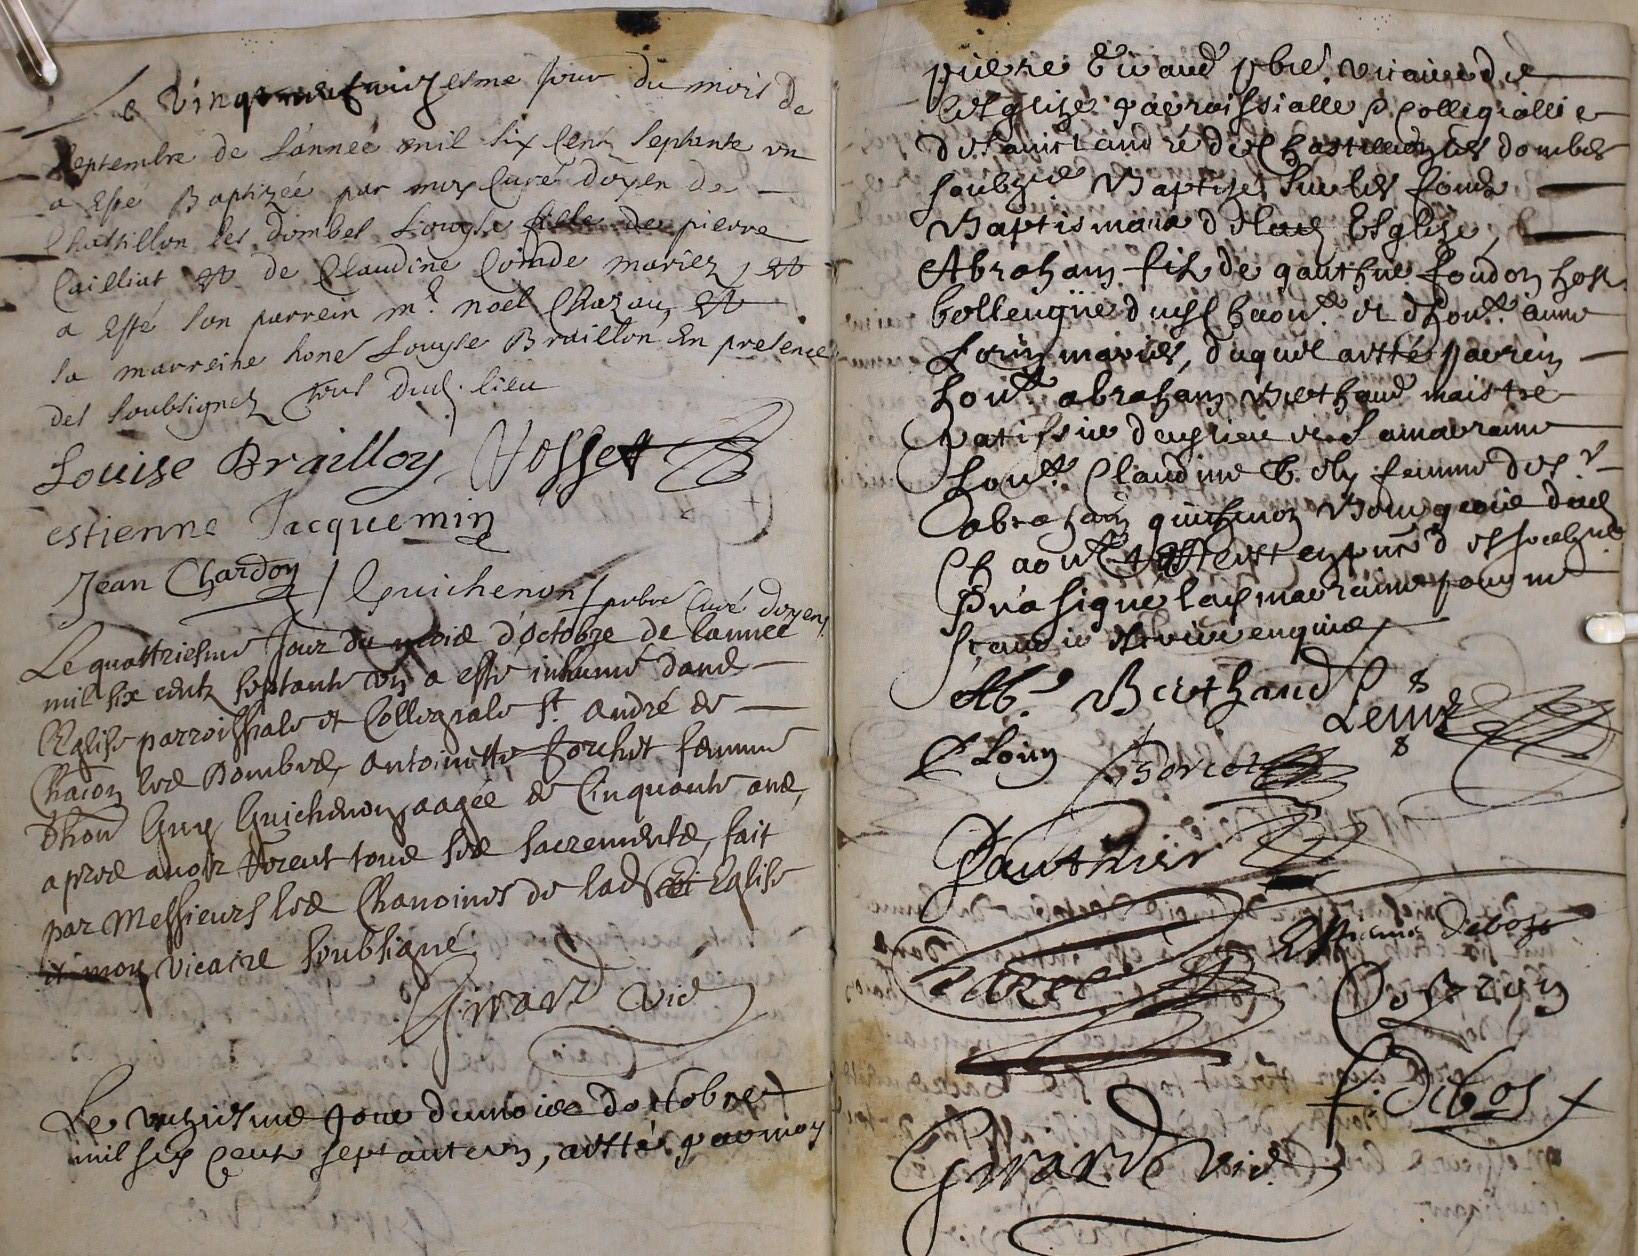 Le vingt esme jour du mois de
septembre de l'année mil six cent septante un
a esté Baptizée par moy Curé doyen de
Chastillon les dombes Louyse fille de pierre
Cailliat et de Claudine Comde mariez, et
a esté son parrein mr. noel Chazau, et
sa marreine hone Louyse Braillon En presence
des soubsignez tous dud. lieu
Louise Brailloy Vosset
estienne Jacquemin
Jean Chardon Guichenon prbre Curé doyen
Le quattriesme Jour du mois d'octobre de lannée
mil six centz septante un a esté inhumé dans
l'Eglise parroissiale et Collegiale st. André de
Chaon les Dombes, Antoinette Jorchet femme
d'hon Guy Guichenon, aagée de Cinquante ans,
apres auoir receut tous ses sacrements, fait
par Messieurs les Chanoines de lad Eglise
et moy vicaire soubsigné
Girard vic
Le unziesme jour du mois doctobre
mil six cent septante un, a esté par moy
pierre Girard pbre. vicaire de
l'esglize parroissialle & Collegialle
de sainct andré de Chastillon les dombes
soubzne Baptizé sur les fonds
Baptismaux de lad Esglize,
Abraham fils de gauthie fondon host
bollengiie dud Chaon. et d'hon. anne
Loün mariés, duquel a esté parrein
hon. abraham Berthaud maistre
patissie dud lieu et sa marraine
hon. Claudine femme de sr
abraham guichenon Bourgeois dud
Chaon. en pnce des soubzne
qui a signé lad marraine pour ne
scauoir de ce enquise
Ab. Berthaud Lemz
P Loün Borcet
Gauthier
Estienne debost
F. Debost
Girard vic